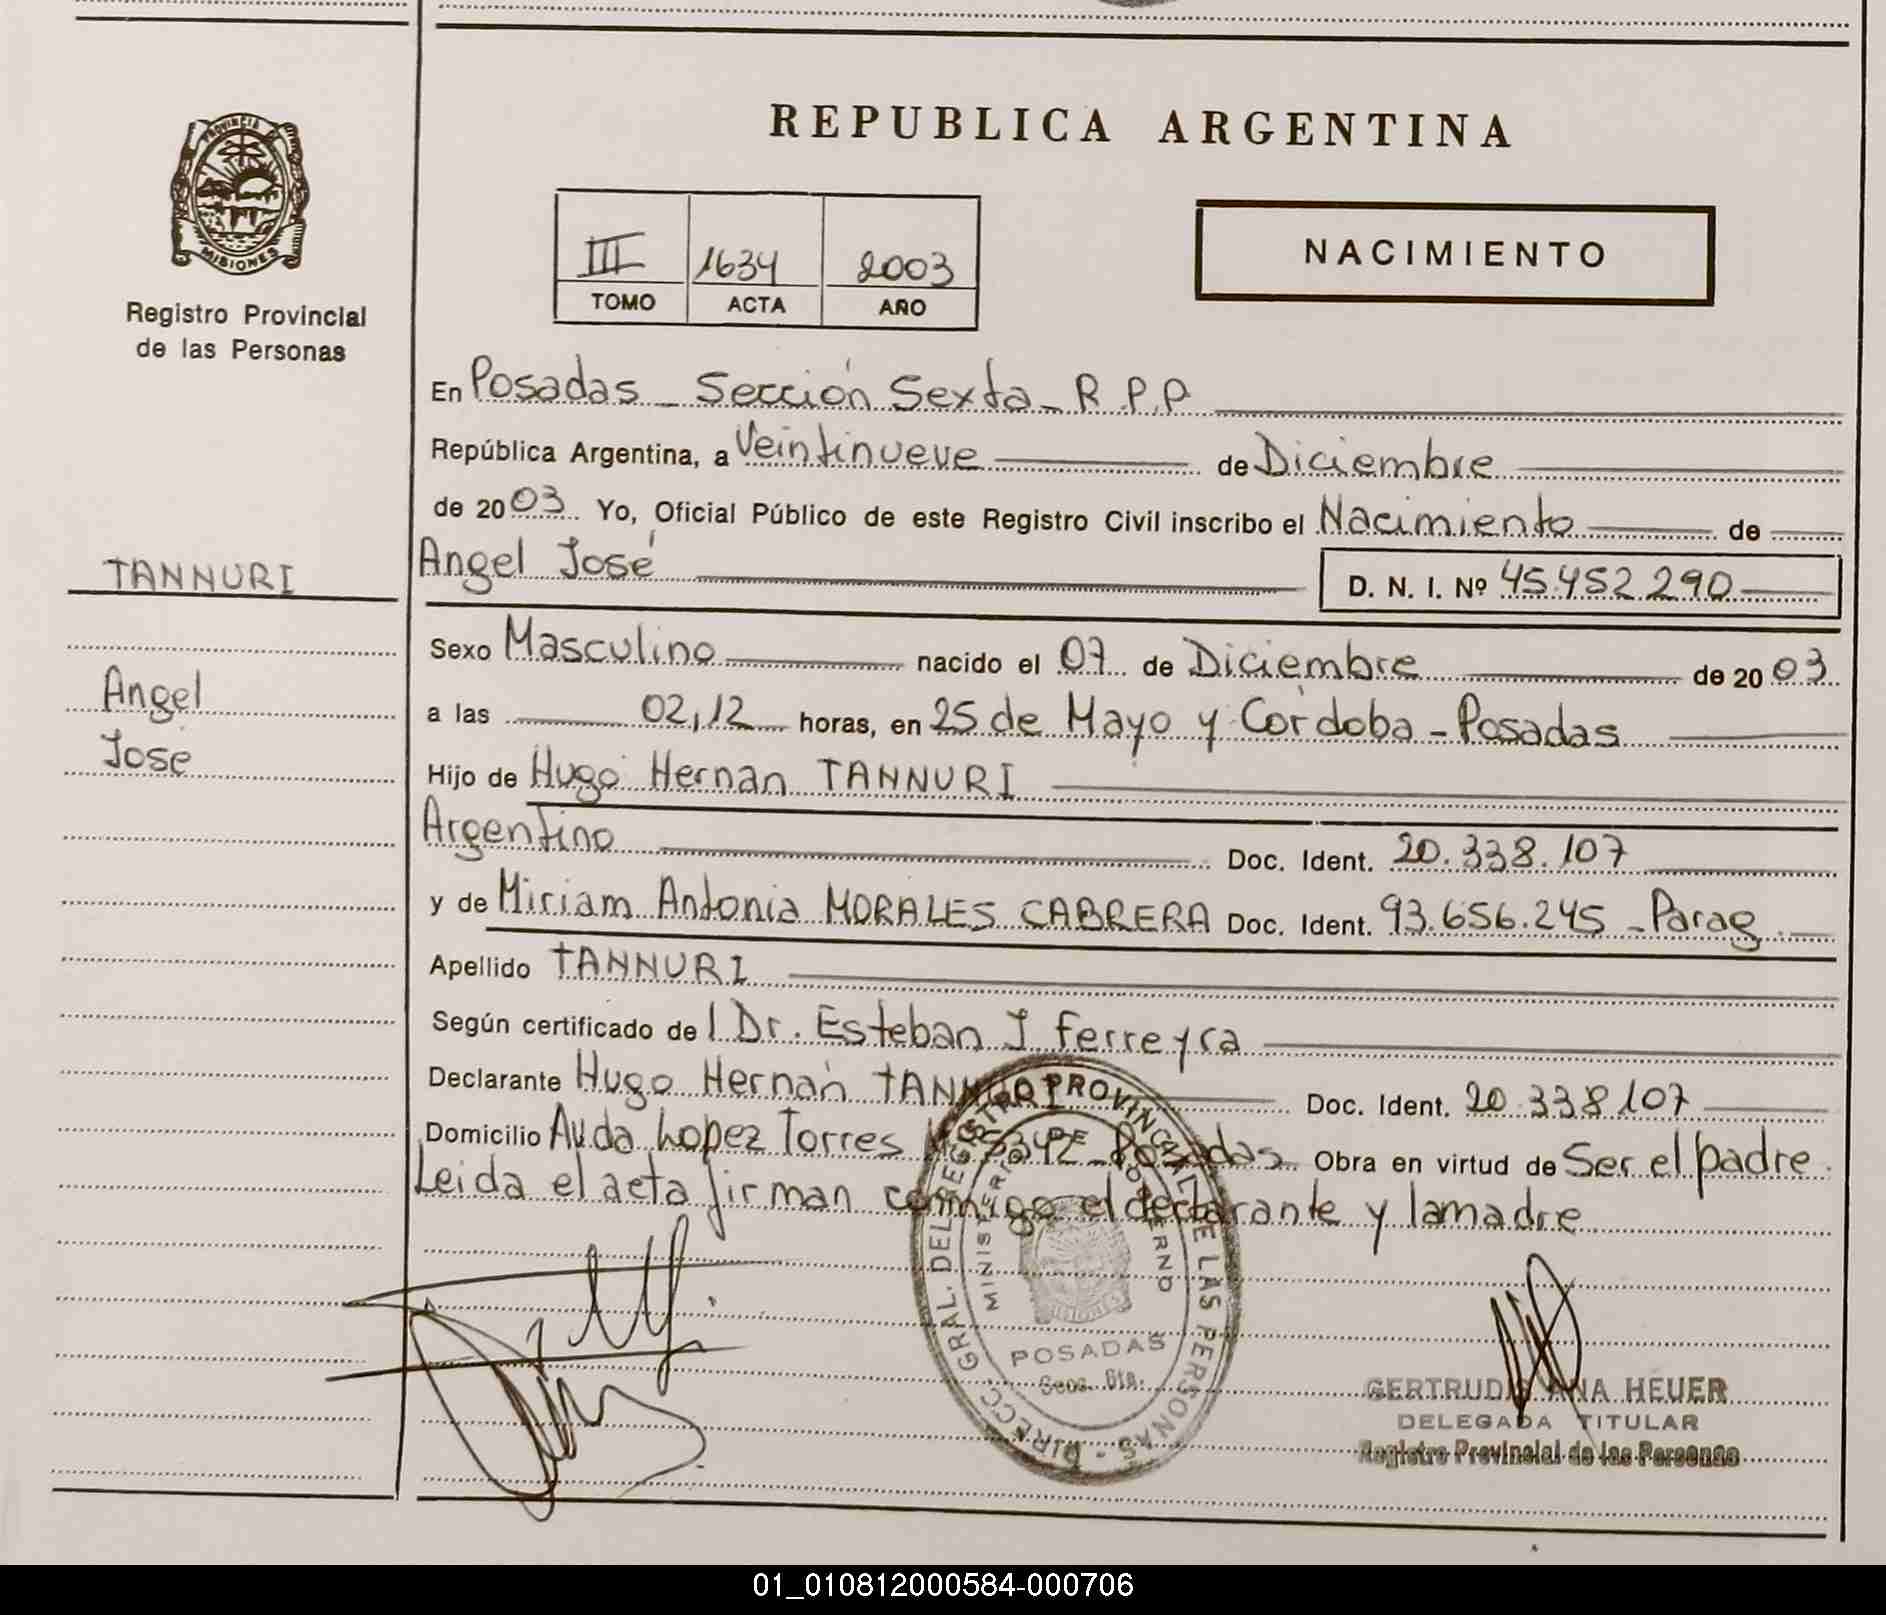 REPUBLICA ARGENTINA
PROVINCIA
MISIONES
Registro Provincial
de las Personas
III 1634 2003
TOMO ACTA AÑO
NACIMIENTO
En Posadas - Sección Sexta - R.P.P
República Argentina, a Veintinueve de Diciembre
de 2003. Yo, Oficial Público de este Registro Civil inscribo el Nacimiento de
TANNURI
Angel José D. N. I. Nº 45.452.290
Sexo Masculino nacido el 07 de Diciembre de 2003
Angel
José
a las 02,12 horas, en 25 de Mayo y Córdoba - Posadas
Hijo de Hugo Hernan TANNURI
Argentino Doc. Ident. 20.338.107
y de Miriam Antonia MORALES CABRERA Doc. Ident. 93.656.245 - Parag.
Apellido TANNURI
Según certificado del Dr. Esteban J Ferreyra
Declarante Hugo Hernán TANNURI Doc. Ident. 20.338.107
Domicilio Avda Lopez Torres 5342 - Posadas Obra en virtud de Ser el padre.
Leida el acta firman conmigo el declarante y la madre
DIRECC. GRAL. DEL REGISTRO PROVINCIAL DE LAS PERSONAS
MINISTERIO DE GOBIERNO
POSADAS
Secc. 6ta.
GERTRUDIS ANA HEUER
DELEGADA TITULAR
Registro Provincial de las Personas
01_010812000584-000706